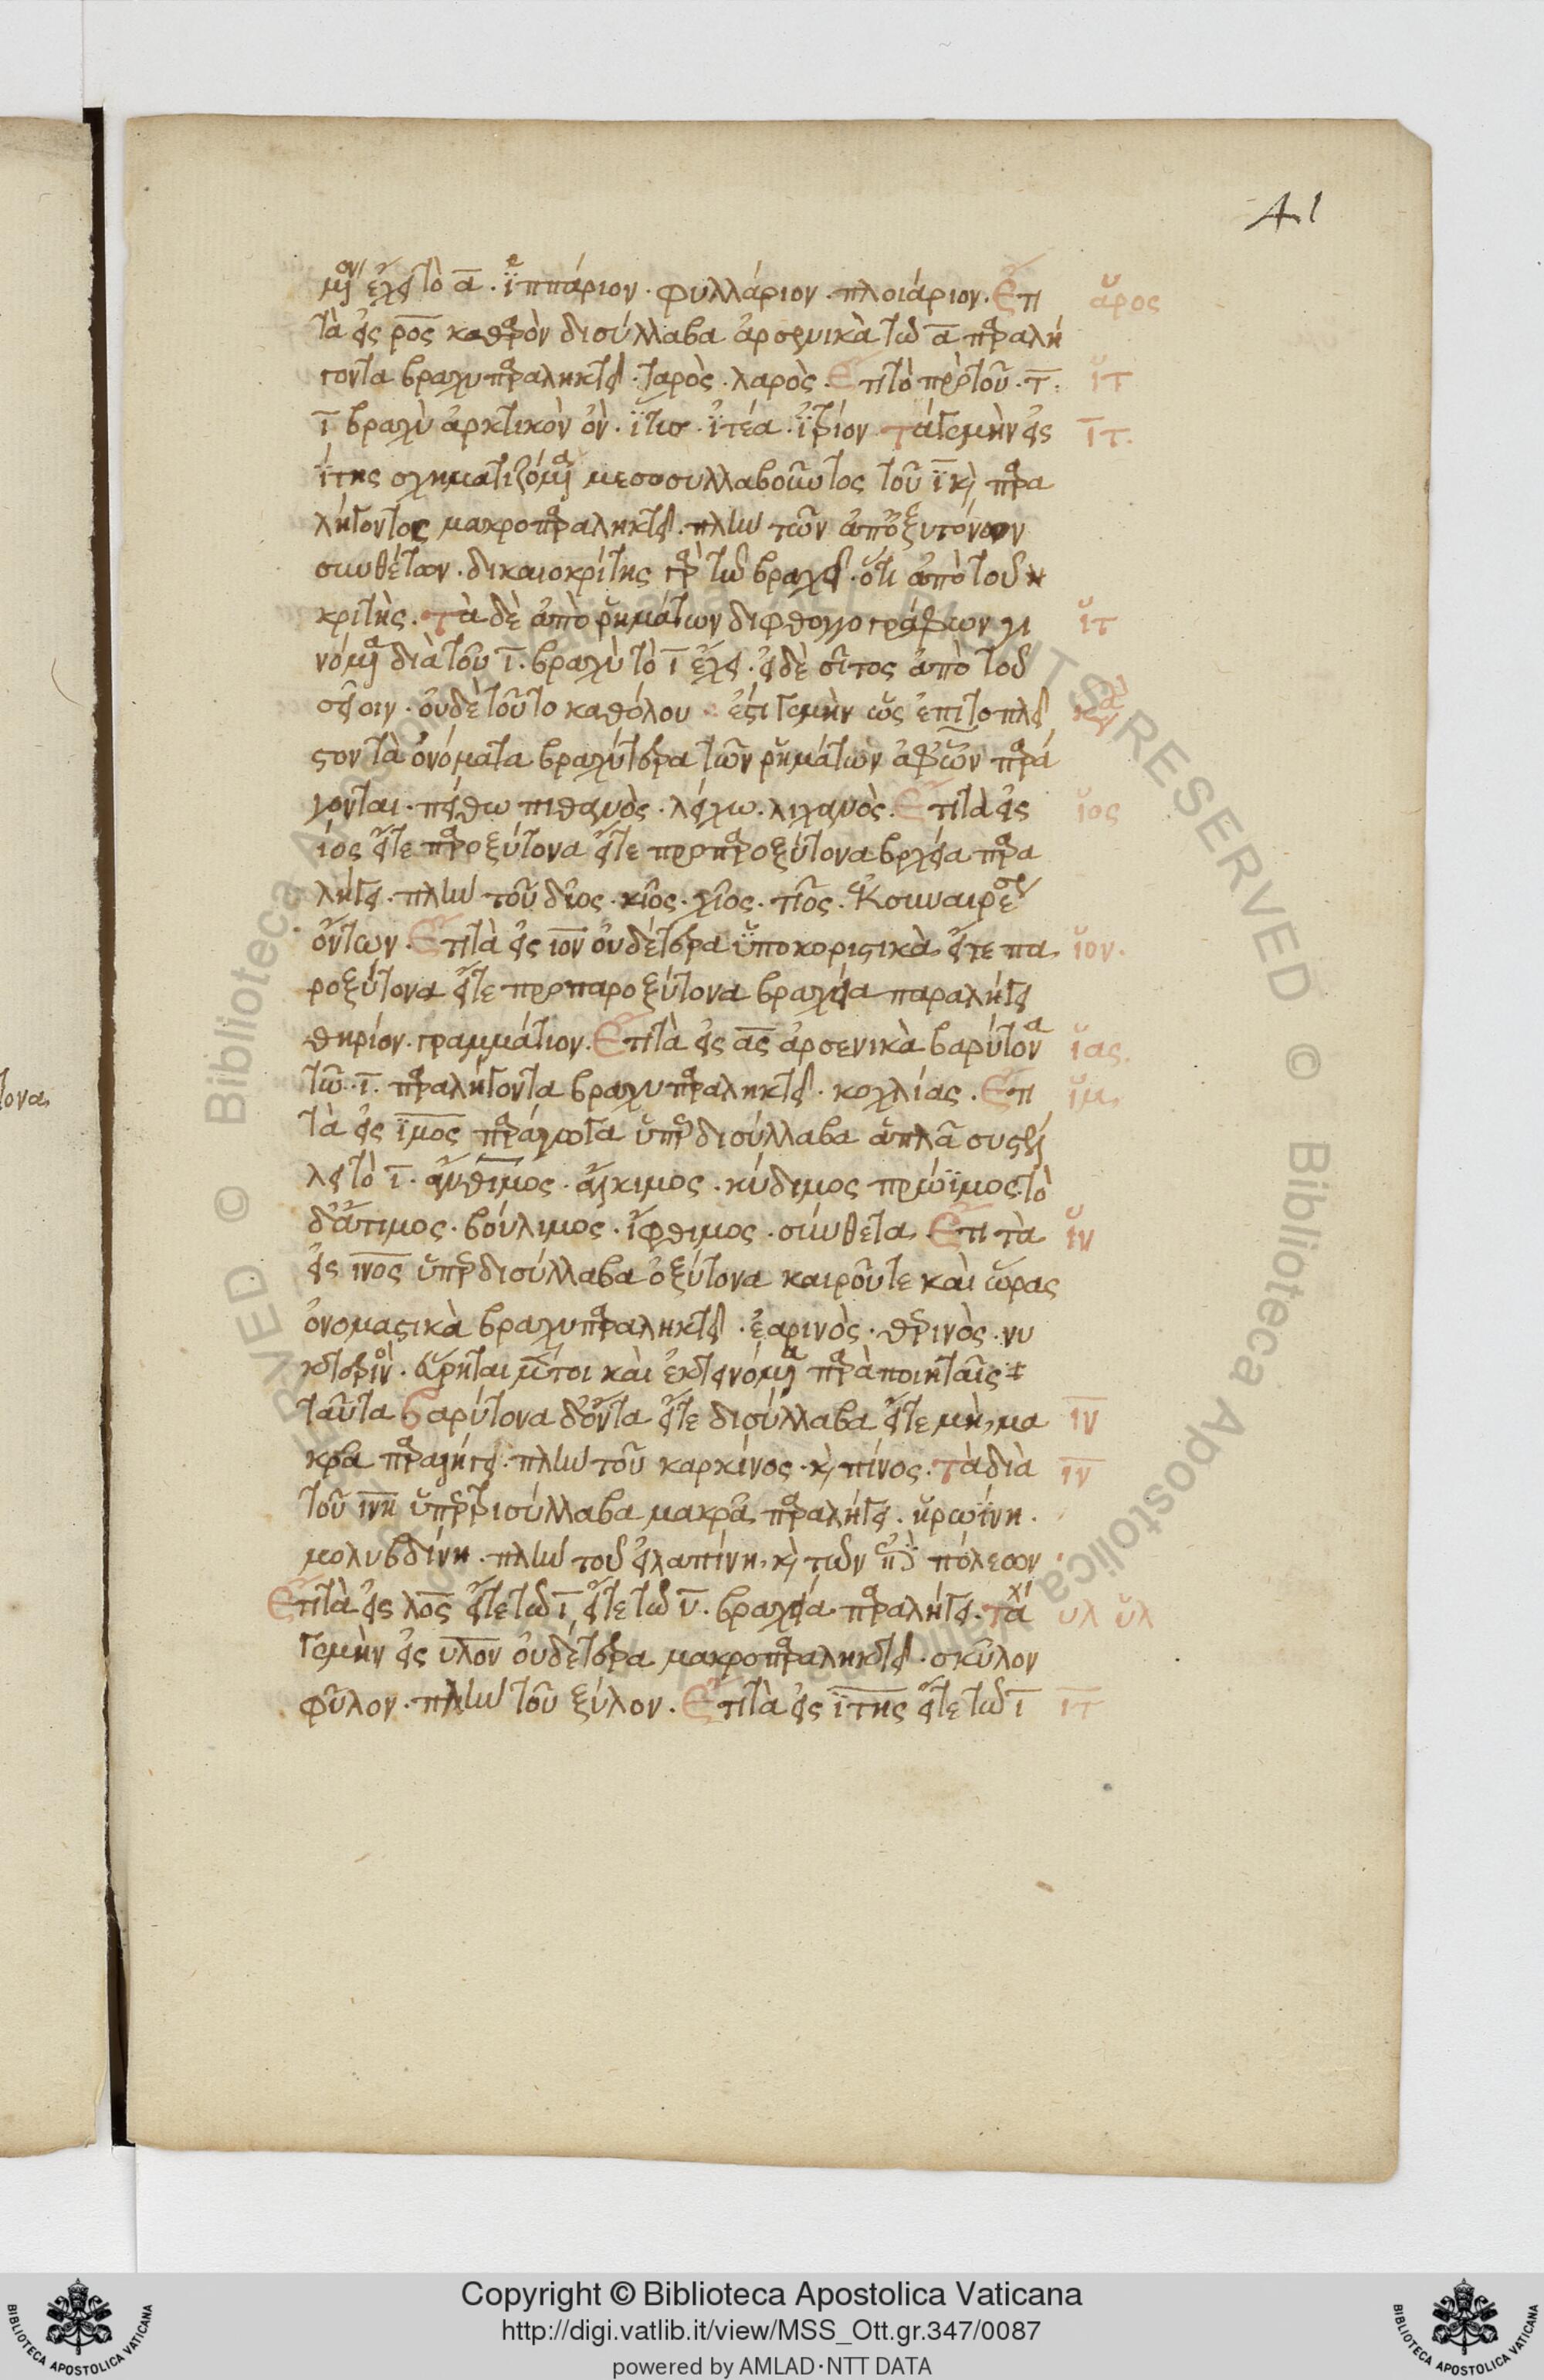 41
ἔχει τὸ α. ἱππάριον. φυλλάριον. πλοιάριον. Ετι ᾰρος
τὰ εἰς ρος καθαρὸν δισύλλαβα ἀρσενικὰ τῶ α παραλή
γοντα βραχυπαραληκτεῖ. ϊαρὸς. λαρὸς. Ετι τὸ πρὸ τοῦ. τ. ῐτ
ι βραχὺ ἀρκτικὸν ὂν. ἰτέα. ϊτρίον. τάγε μὴν εἰς ῑτ.
ίτης σχηματιζόμενα μεσοσυλλαβοῦντος τοῦ ϊ κὶ παρα
λήγοντος μακροπαραληκτεῖ. πλὴν τῶν ἀπὸ ὀξυτόνων
συνθέτων. δικαιοκρίτης γὰρ τῶ βραχεῖ. ὅτι ἀπὸ τοῦ
κριτὴς. τὰ δὲ ἀπὸ ῥημάτων διφθογγογράφων γι ῐτ
νόμενα διὰ τοῦ ι. βραχὺ τὸ ι ἔχει. εἰ δὲ σῖτος ἀπὸ τοῦ
σείειν. οὐδὲ τοῦτο καθόλου ἔστι γε μὴν ὡς ἐπιτοπλεῖ
στον τὰ ὀνόματα βραχύτερα τῶν ῥημάτων ἀφ' ὧν παρά
γονται. πείθω πιθανὸς. λείχω. λιχανὸς. Ετι τὰ εἰς ῐος
ίος εἴτε παροξύτονα εἴτε προπαροξύτονα βραχεῖα παρα
λήγει. πλὴν τοῦ δῖος. κῖος. χῖος. τῖος. ἐκ συναιρέσεως
ὄντων. Ετι τὰ εἰς ιον οὐδέτερα ὑποκοριστικὰ εἴτε πα ῐον.
ροξύτονα εἴτε προπαροξύτονα βραχεῖα παραλήγει
θηρίον. γραμμάτιον. Ετι τὰ εἰς ας ἀρσενικὰ βαρύτονα ῐας.
τῶ. ι. παραλήγοντα βραχυπαραληκτεῖ. κοχλίας. Ετι ῐμ
τὰ εἰς ϊμος παράγωγα ὑπὲρ δισύλλαβα ἁπλᾶ συστέλ
λει τὸ ι. ἄνθιμος. ἄλκιμος. κύδιμος πρώϊμος. τὸ
δ' ἄτιμος. βούλιμος. ἴφθιμος. σύνθετα. Ετι τὰ ῐν
εἰς ινος ὑπὲρ δισύλλαβα ὀξύτονα καιροῦ τε καὶ ὥρας
ὀνομαστικὰ βραχυπαραληκτεῖ. ἐαρινὸς. θερινὸς. νυ
κτερινόν. εὕρηται μέντοι καὶ ἐκτεινόμενα παρὰ ποιηταῖς
ταῦτα βαρύτονα δ' ὄντα εἴτε δισύλλαβα εἴτε μὴ, μα ῑν
κρα παραλήγει. πλὴν τοῦ καρκίνος. κὶ πίνος. τὰ διὰ ῑν
τοῦ ινη ὑπὲρ τρισύλλαβα μακρᾶ παραλήγει. ἡρωΐνη.
μολυβδίνη. πλὴν τοῦ εἰλαπίνη, κὶ τῶν ἐπὶ πόλεων
Ετι τὰ εἰς λος εἴτε τῶ ι εἴτε τῶ υ. βραχεῖα παραλήγει. τά υλ ῠλ
γε μὴν εἰς υλον οὐδέτερα μακροπαραληκτεῖ. σκῦλον
φῦλον. πλὴν τοῦ ξύλον. Ετι τὰ εἰς ϊτης εἴτε τῶ ι ῑτ
τονα
Copyright © Biblioteca Apostolica Vaticana
http://digi.vatlib.it/view/MSS_Ott.gr.347/0087
powered by AMLAD·NTT DATA